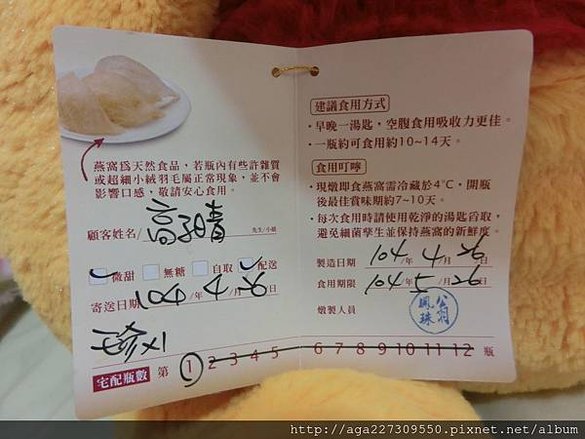 燕窩為天然食品，若瓶內有些許雜質
或超細小絨羽毛屬正常現象，並不會
影響口感，敬請安心食用。
顧客姓名/ 先生/小姐
微甜 無糖 自取 配送
寄送日期 104/年 4/月 26日
珍x1
宅配瓶數 第 1 2 3 4 5 6 7 8 9 10 11 12 瓶
建議食用方式
・早晚一湯匙，空腹食用吸收力更佳。
・一瓶約可食用約10~14天。
食用叮嚀
・現燉即食燕窩需冷藏於4°C，開瓶
後最佳賞味期約7~10天。
・每次食用時請使用乾淨的湯匙舀取，
避免細菌孳生並保持燕窩的新鮮度。
製造日期 104年 4月 26日
食用期限 104年 5月 26日
燉製人員
http://aga227309550.pixnet.net/album